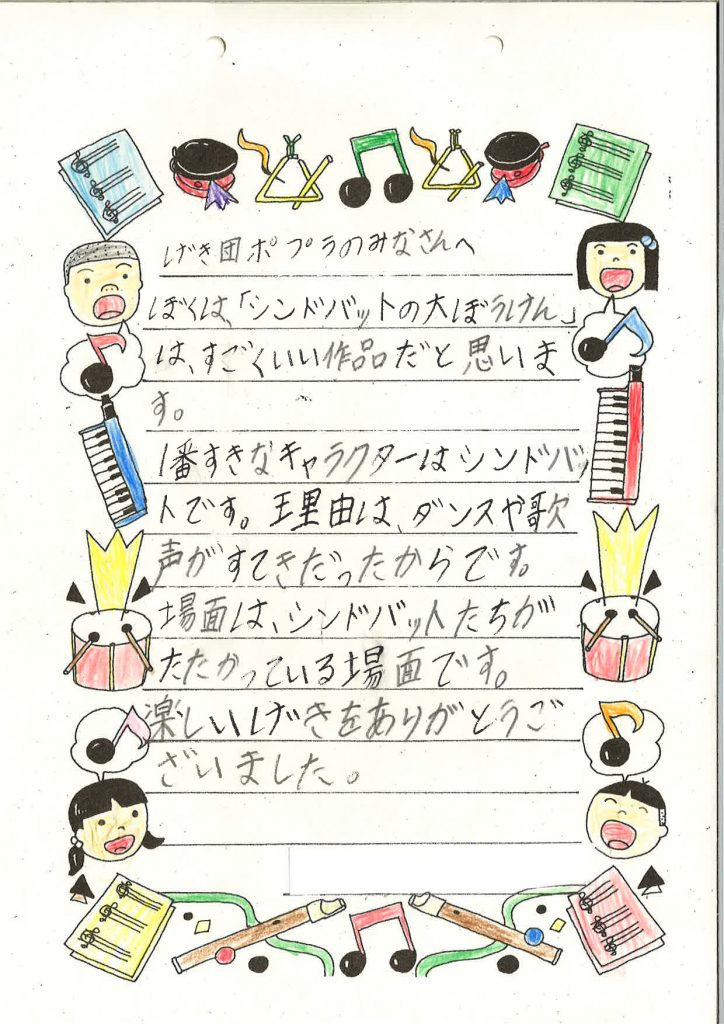 げき団ポプラのみなさんへ
ぼくは、「シンドバットの大ぼうけん」
は、すごくいい作品だと思いま
す。
1番すきなキャラクターはシンドバッ
トです。理由は、ダンスや歌
声がすてきだったからです。
場面は、シンドバットたちが
たたかっている場面です。
楽しいげきをありがとうご
ざいました。